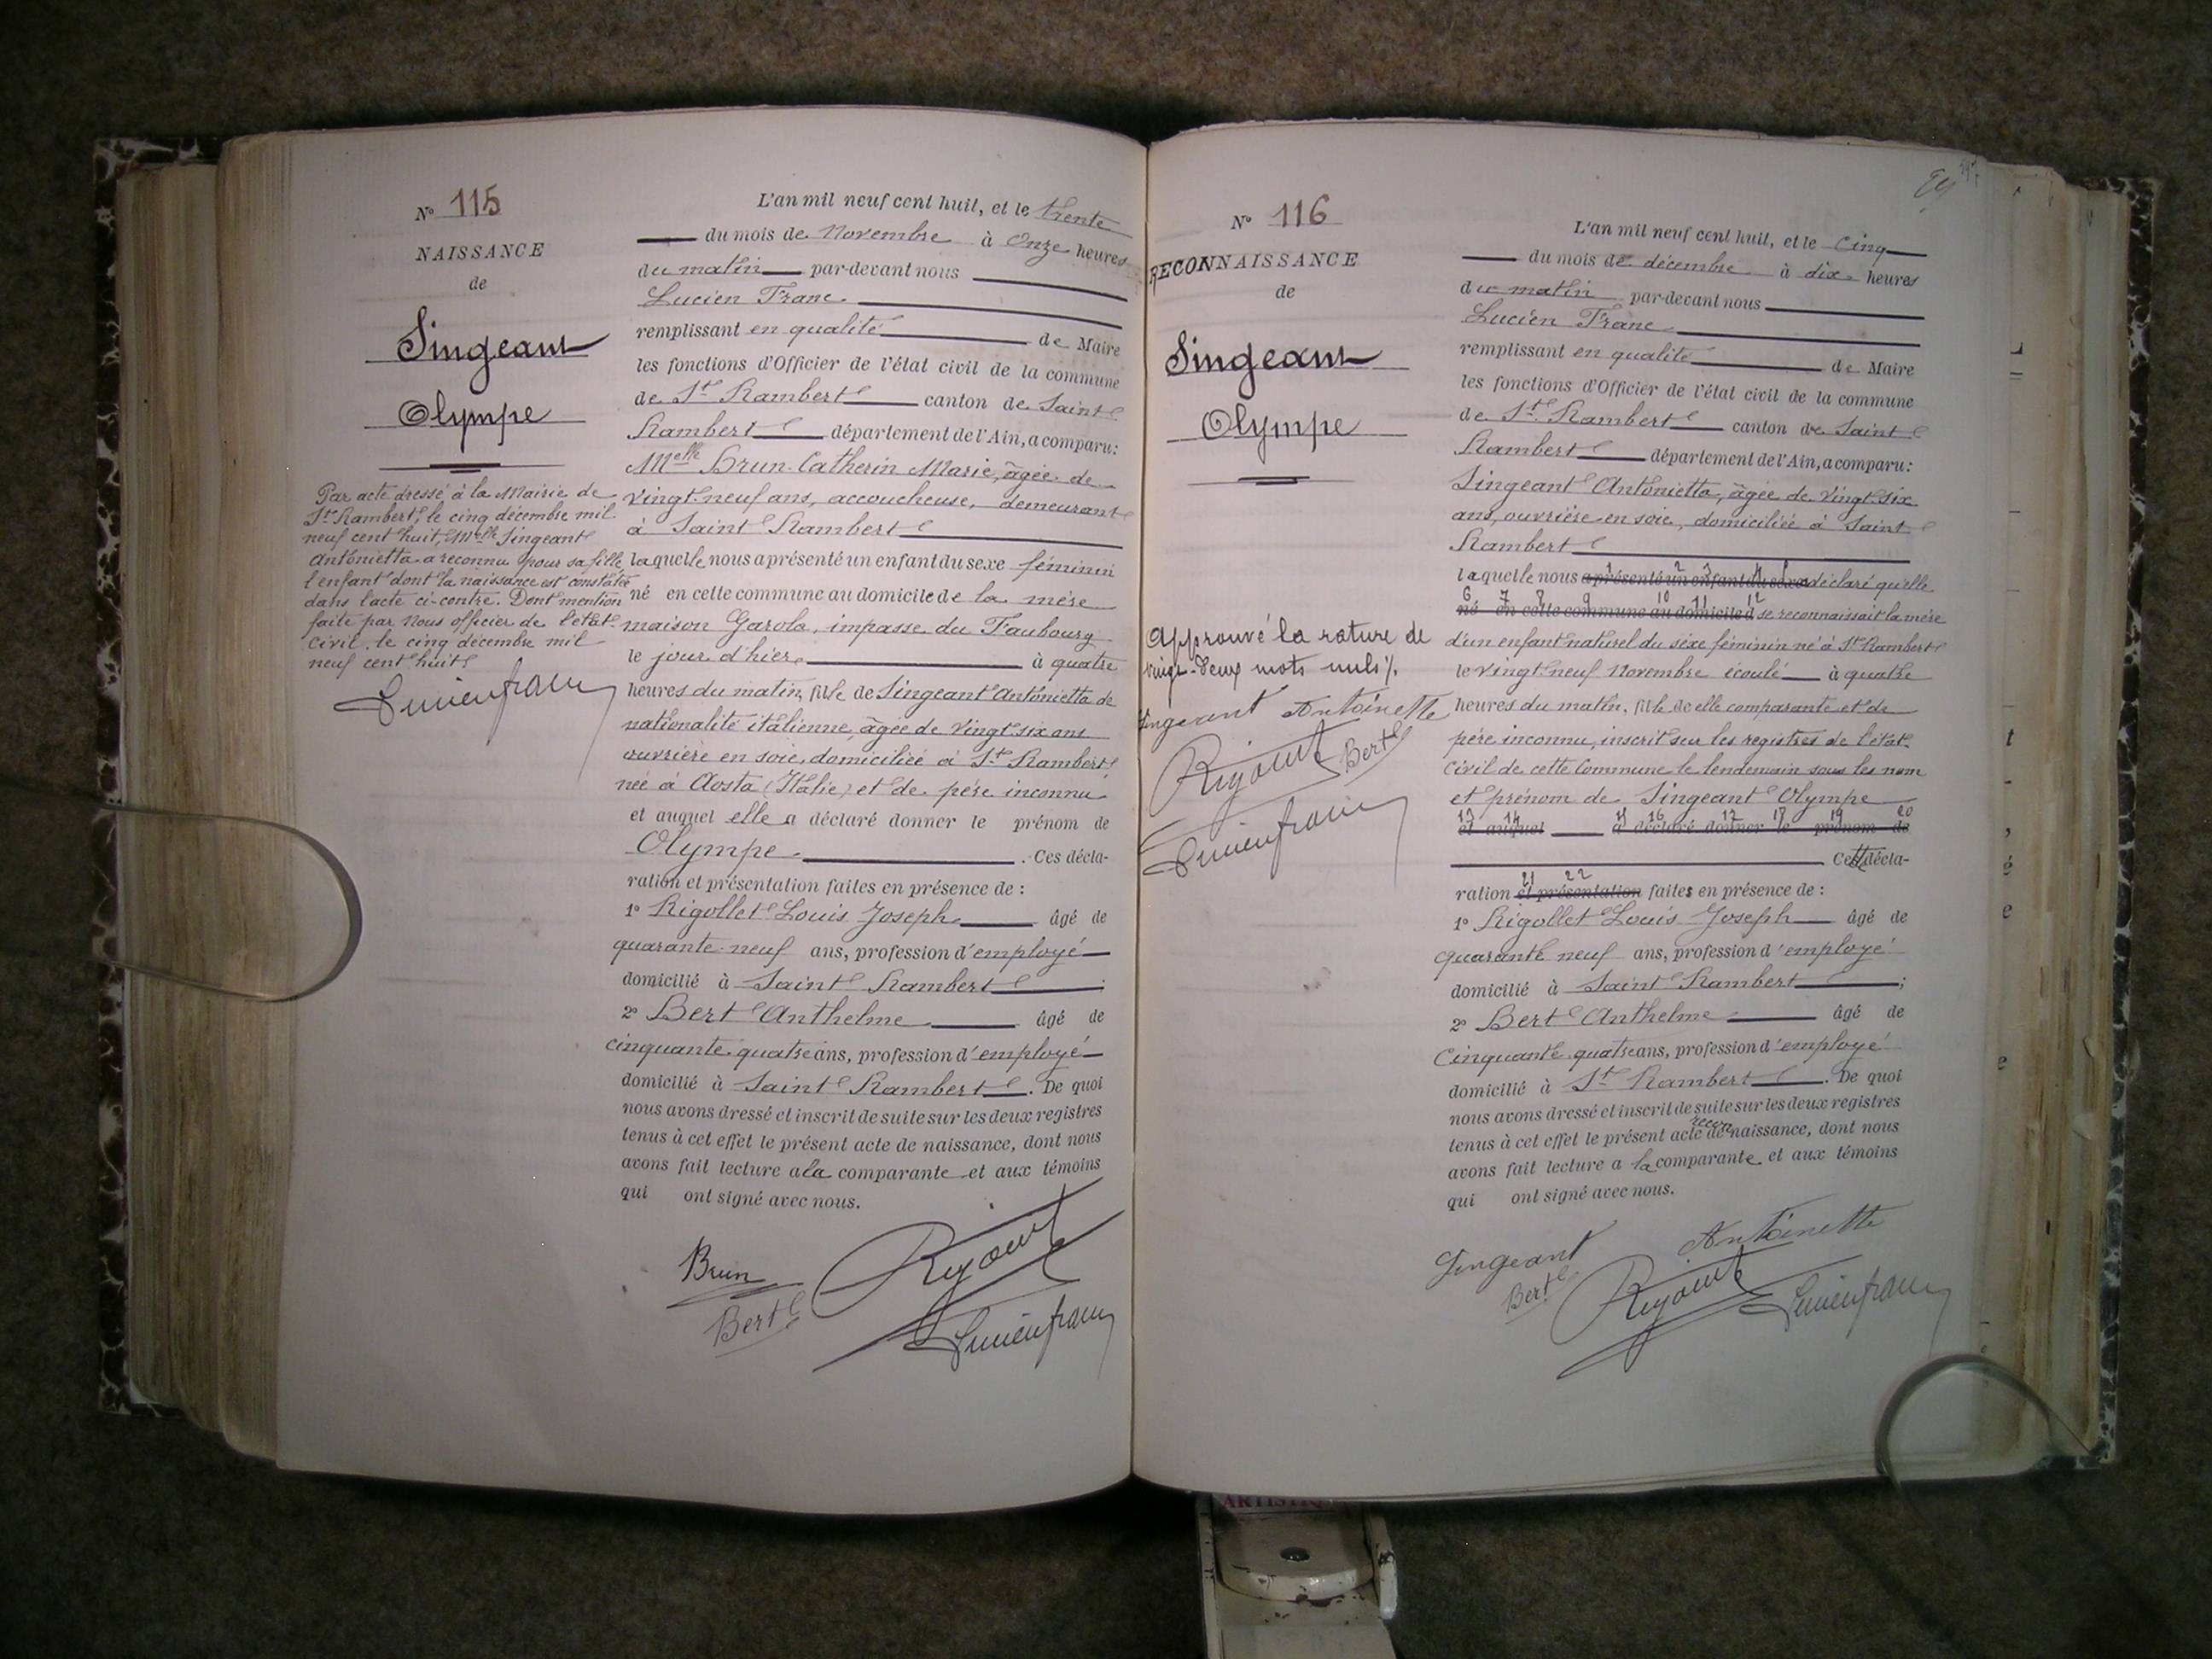 N° 115
NAISSANCE
de
Singeant
Olympe
Par acte dressé à la Mairie de
St Rambert, le cinq décembre mil
neuf cent huit, Melle Singeant
Antonietta a reconnu pour sa fille,
l'enfant dont la naissance est constatée
dans l'acte ci-contre. Dont mention
faite par Nous officier de l'état-
civil, le cinq décembre mil
neuf cent huit
Lucien franc
L'an mil neuf cent huit, et le trente
du mois de Novembre à Onze heures
du matin par-devant nous
Lucien Franc
remplissant en qualité de Maire
les fonctions d'Officier de l'état civil de la commune
de St Rambert canton de Saint
Rambert département de l'Ain, a comparu:
Melle Brun-Catherin Marie, âgée de
vingt-neuf ans, accoucheuse, demeurant
à Saint Rambert
laquelle nous a présenté un enfant du sexe féminin
né en cette commune au domicile de la mère
maison Garola, impasse du Faubourg
le jour d'hier à quatre
heures du matin, fille de Singeant Antonietta de
nationalité italienne, âgée de vingt six ans
ouvrière en soie, domiciliée à St Rambert,
née à Aosta (Italie) et de père inconnu
et auquel elle a déclaré donner le prénom de
Olympe. Ces décla-
ration et présentation faites en présence de :
1° Rigollet Louis Joseph âgé de
quarante-neuf ans, profession d'employé
domicilié à Saint Rambert ;
2° Bert Anthelme âgé de
cinquante quatre ans, profession d'employé
domicilié à Saint Rambert. De quoi
nous avons dressé et inscrit de suite sur les deux registres
tenus à cet effet le présent acte de naissance, dont nous
avons fait lecture a la comparante et aux témoins
qui ont signé avec nous.
Brun
Bert
Lucien franc
N° 116
RECONNAISSANCE
de
Singeant
Olympe
Approuvé la rature de
vingt-deux mots nuls
Singeant Antoinette
Bert
Lucien franc
L'an mil neuf cent huit, et le cinq
du mois de décembre à dix heures
du matin par-devant nous
Lucien Franc
remplissant en qualité de Maire
les fonctions d'Officier de l'état civil de la commune
de St Rambert canton de Saint
Rambert département de l'Ain, a comparu:
Singeant Antonietta, âgée de vingt-six
ans, ouvrière en soie, domiciliée à Saint
Rambert
1 2 3 4 5
laquelle nous a présenté un enfant du sexe a déclaré qu'elle
6 7 8 9 10 11 12
né en cette commune au domicile d se reconnaissait la mère
d'un enfant naturel du sexe féminin né à St Rambert
le vingt-neuf Novembre écoulé à quatre
heures du matin, fille de elle comparante et de
père inconnu, inscrit sur les registres de l'état-
civil de cette Commune le lendemain sous les nom
et prénom de Singeant Olympe
13 14 15 16 17 18 19 20
et auquel a déclaré donner le prénom de
Cette décla-
21 22
ration et présentation faites en présence de :
1° Rigollet Louis Joseph âgé de
quarante neuf ans, profession d'employé
domicilié à Saint Rambert ;
2° Bert Anthelme âgé de
Cinquante quatre ans, profession d'employé
domicilié à St Rambert. De quoi
nous avons dressé et inscrit de suite sur les deux registres
recon
tenus à cet effet le présent acte de naissance, dont nous
avons fait lecture a la comparante et aux témoins
qui ont signé avec nous.
Singeant Antoinette
Bert
Lucien franc